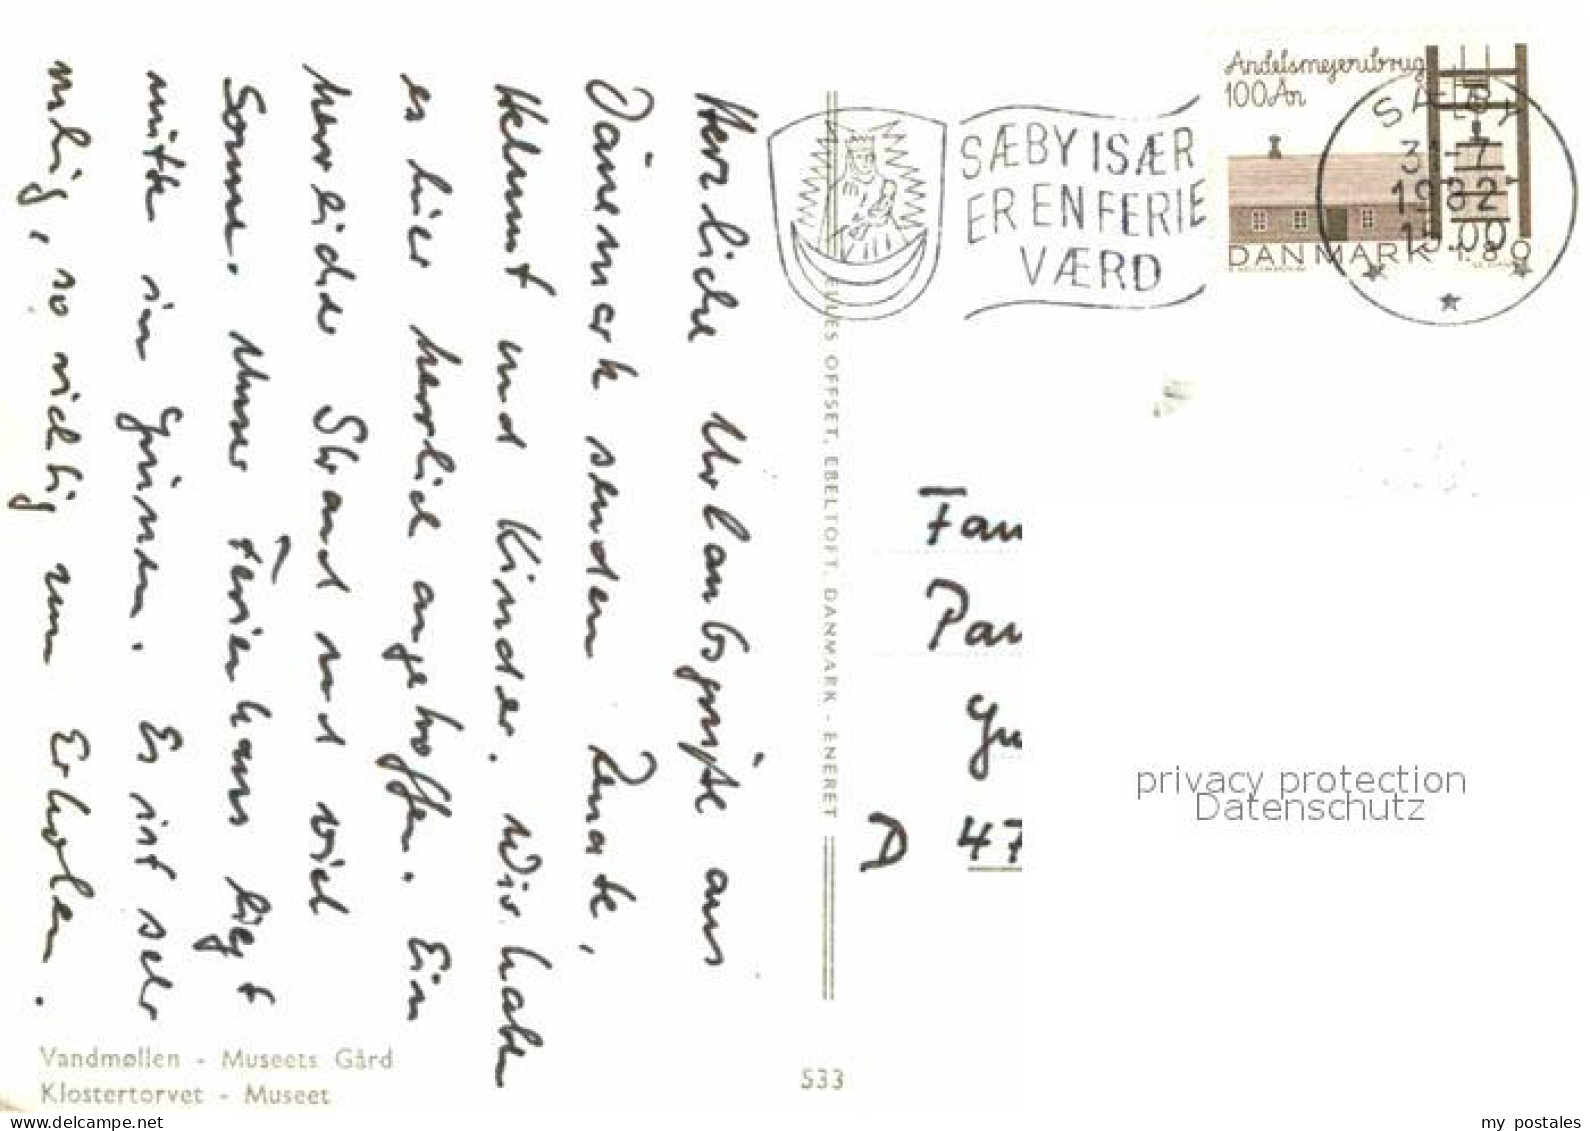 Herzliche Urlaubsgrüße aus
Dänemark senden Renate,
Helmut und Kinder. Wir haben
es hier herrlich angetroffen. Ein
herrlicher Strand und viel
Sonne. Unser Ferienhaus liegt
mitten im Grünen. Es ist sehr
ruhig, so richtig zum Erholen.
Vandmøllen - Museets Gård
Klostertorvet - Museet
533
ELLES OFFSET, EBELTOFT, DANMARK - ENERET
SÆBY ISÆR
ER EN FERIE
VÆRD
Andelsmejeribrug
100 År
DANMARK 1.80
SÆBY
31-7
1982
15.00
Fam
Pau
Gu
D 47
privacy protection
Datenschutz
www.delcampe.net
my_postales